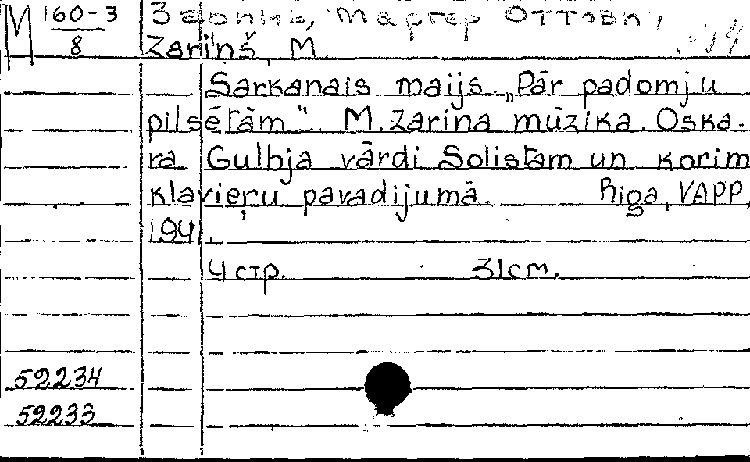 М 160-3
8
Зариньш, Маргер Оттови,
Zariņš, M
Sarkanais maijs „Pār padomju
pilsētām". M. Zariņa mūzika. Oska-
ra Gulbja vārdi Solistam un korim
klavieŗu pavadijumā. Rīga, VAPP,
1941.
4 стр. 31см.
52234
52233